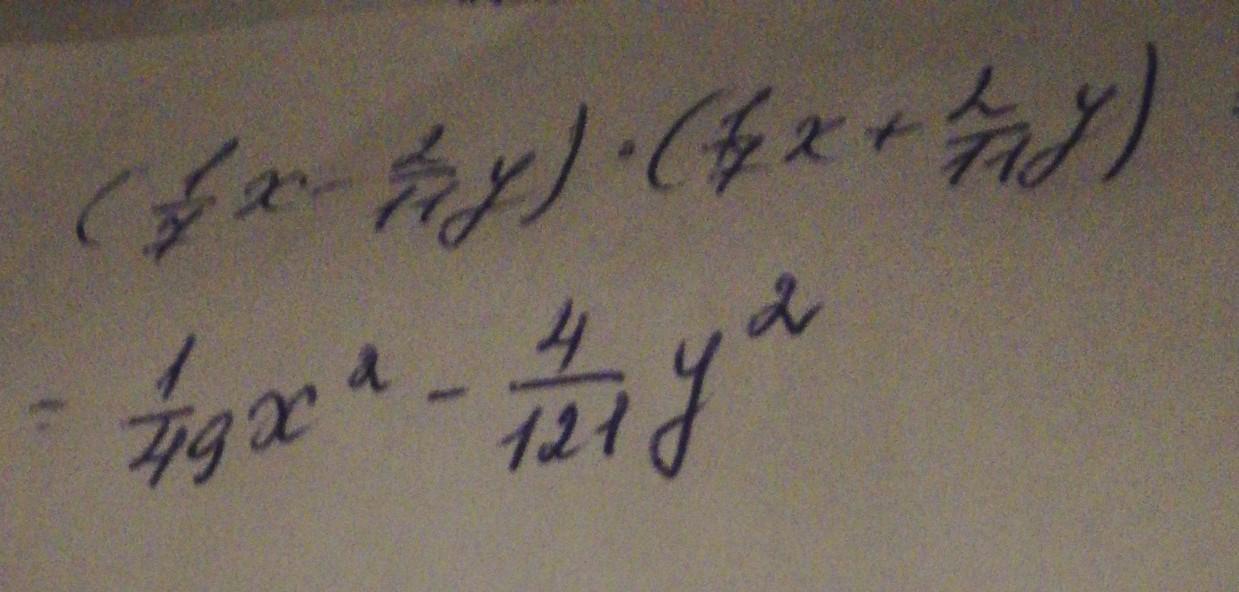 (1/7 x - 2/11 y) · (1/7 x + 2/11 y)
= 1/49 x² - 4/121 y²